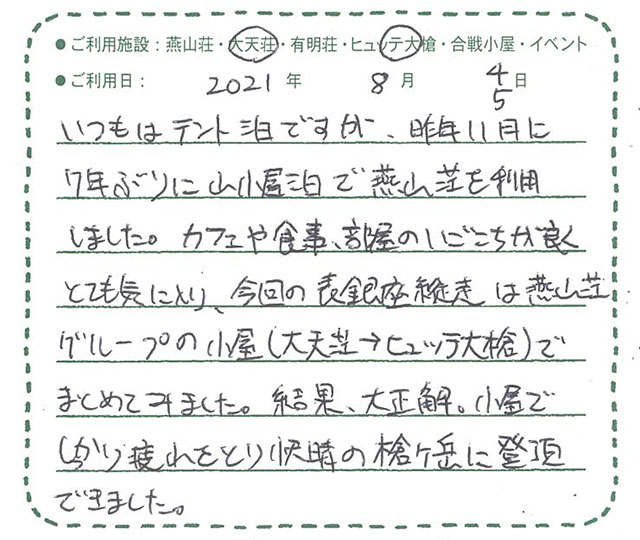 ●ご利用施設：燕山荘・大天荘・有明荘・ヒュッテ大槍・合戦小屋・イベント
●ご利用日： 2021 年 8 月 4 日
5
いつもはテント泊ですが、昨年11月に
7年ぶりに山小屋泊で燕山荘を利用
しました。カフェや食事、部屋のいごこちが良く
とても気に入り、今回の表銀座縦走は燕山荘
グループの小屋(大天荘→ヒュッテ大槍)で
まとめてみました。結果、大正解。小屋で
しっかり疲れをとり快晴の槍ヶ岳に登頂
できました。